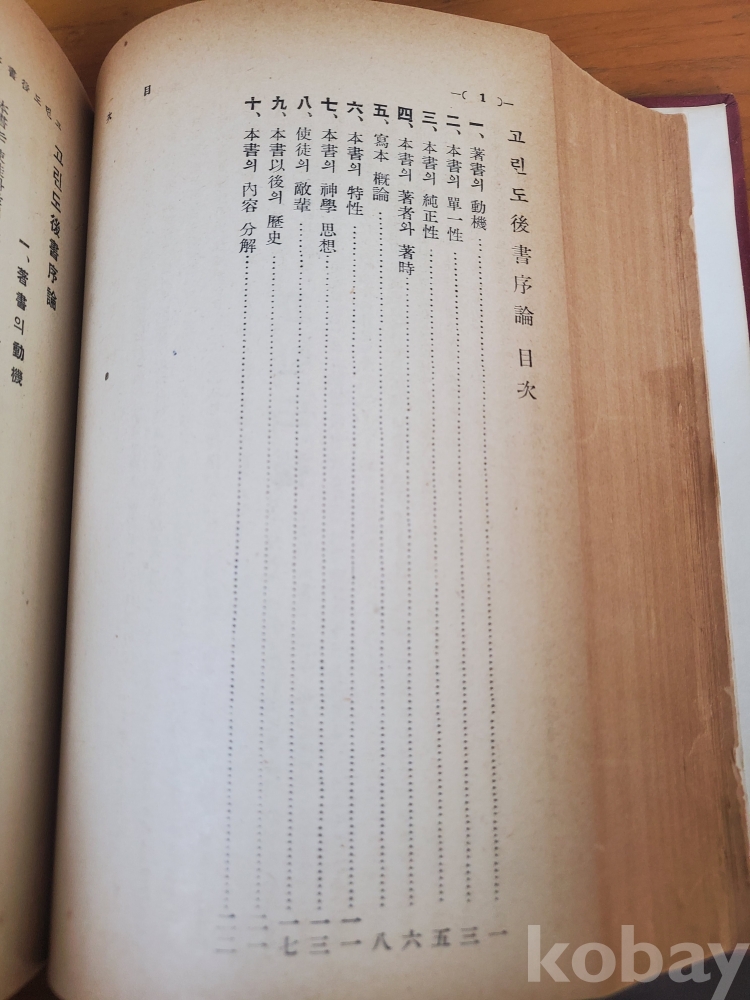 —( 1 )—
고린도後書序論 目次
一、著書의 動機……一
二、本書의 單一性……三
三、本書의 純正性……五
四、本書의 著者와 著時……六
五、寫本 槪論……八
六、本書의 特性……一一
七、本書의 神學 思想……一三
八、使徒의 敵輩……一七
九、本書以後의 歷史……二一
十、本書의 內容 分解……二二
目 次
고린도後書序論
一、著書의 動機
本書는
kobay